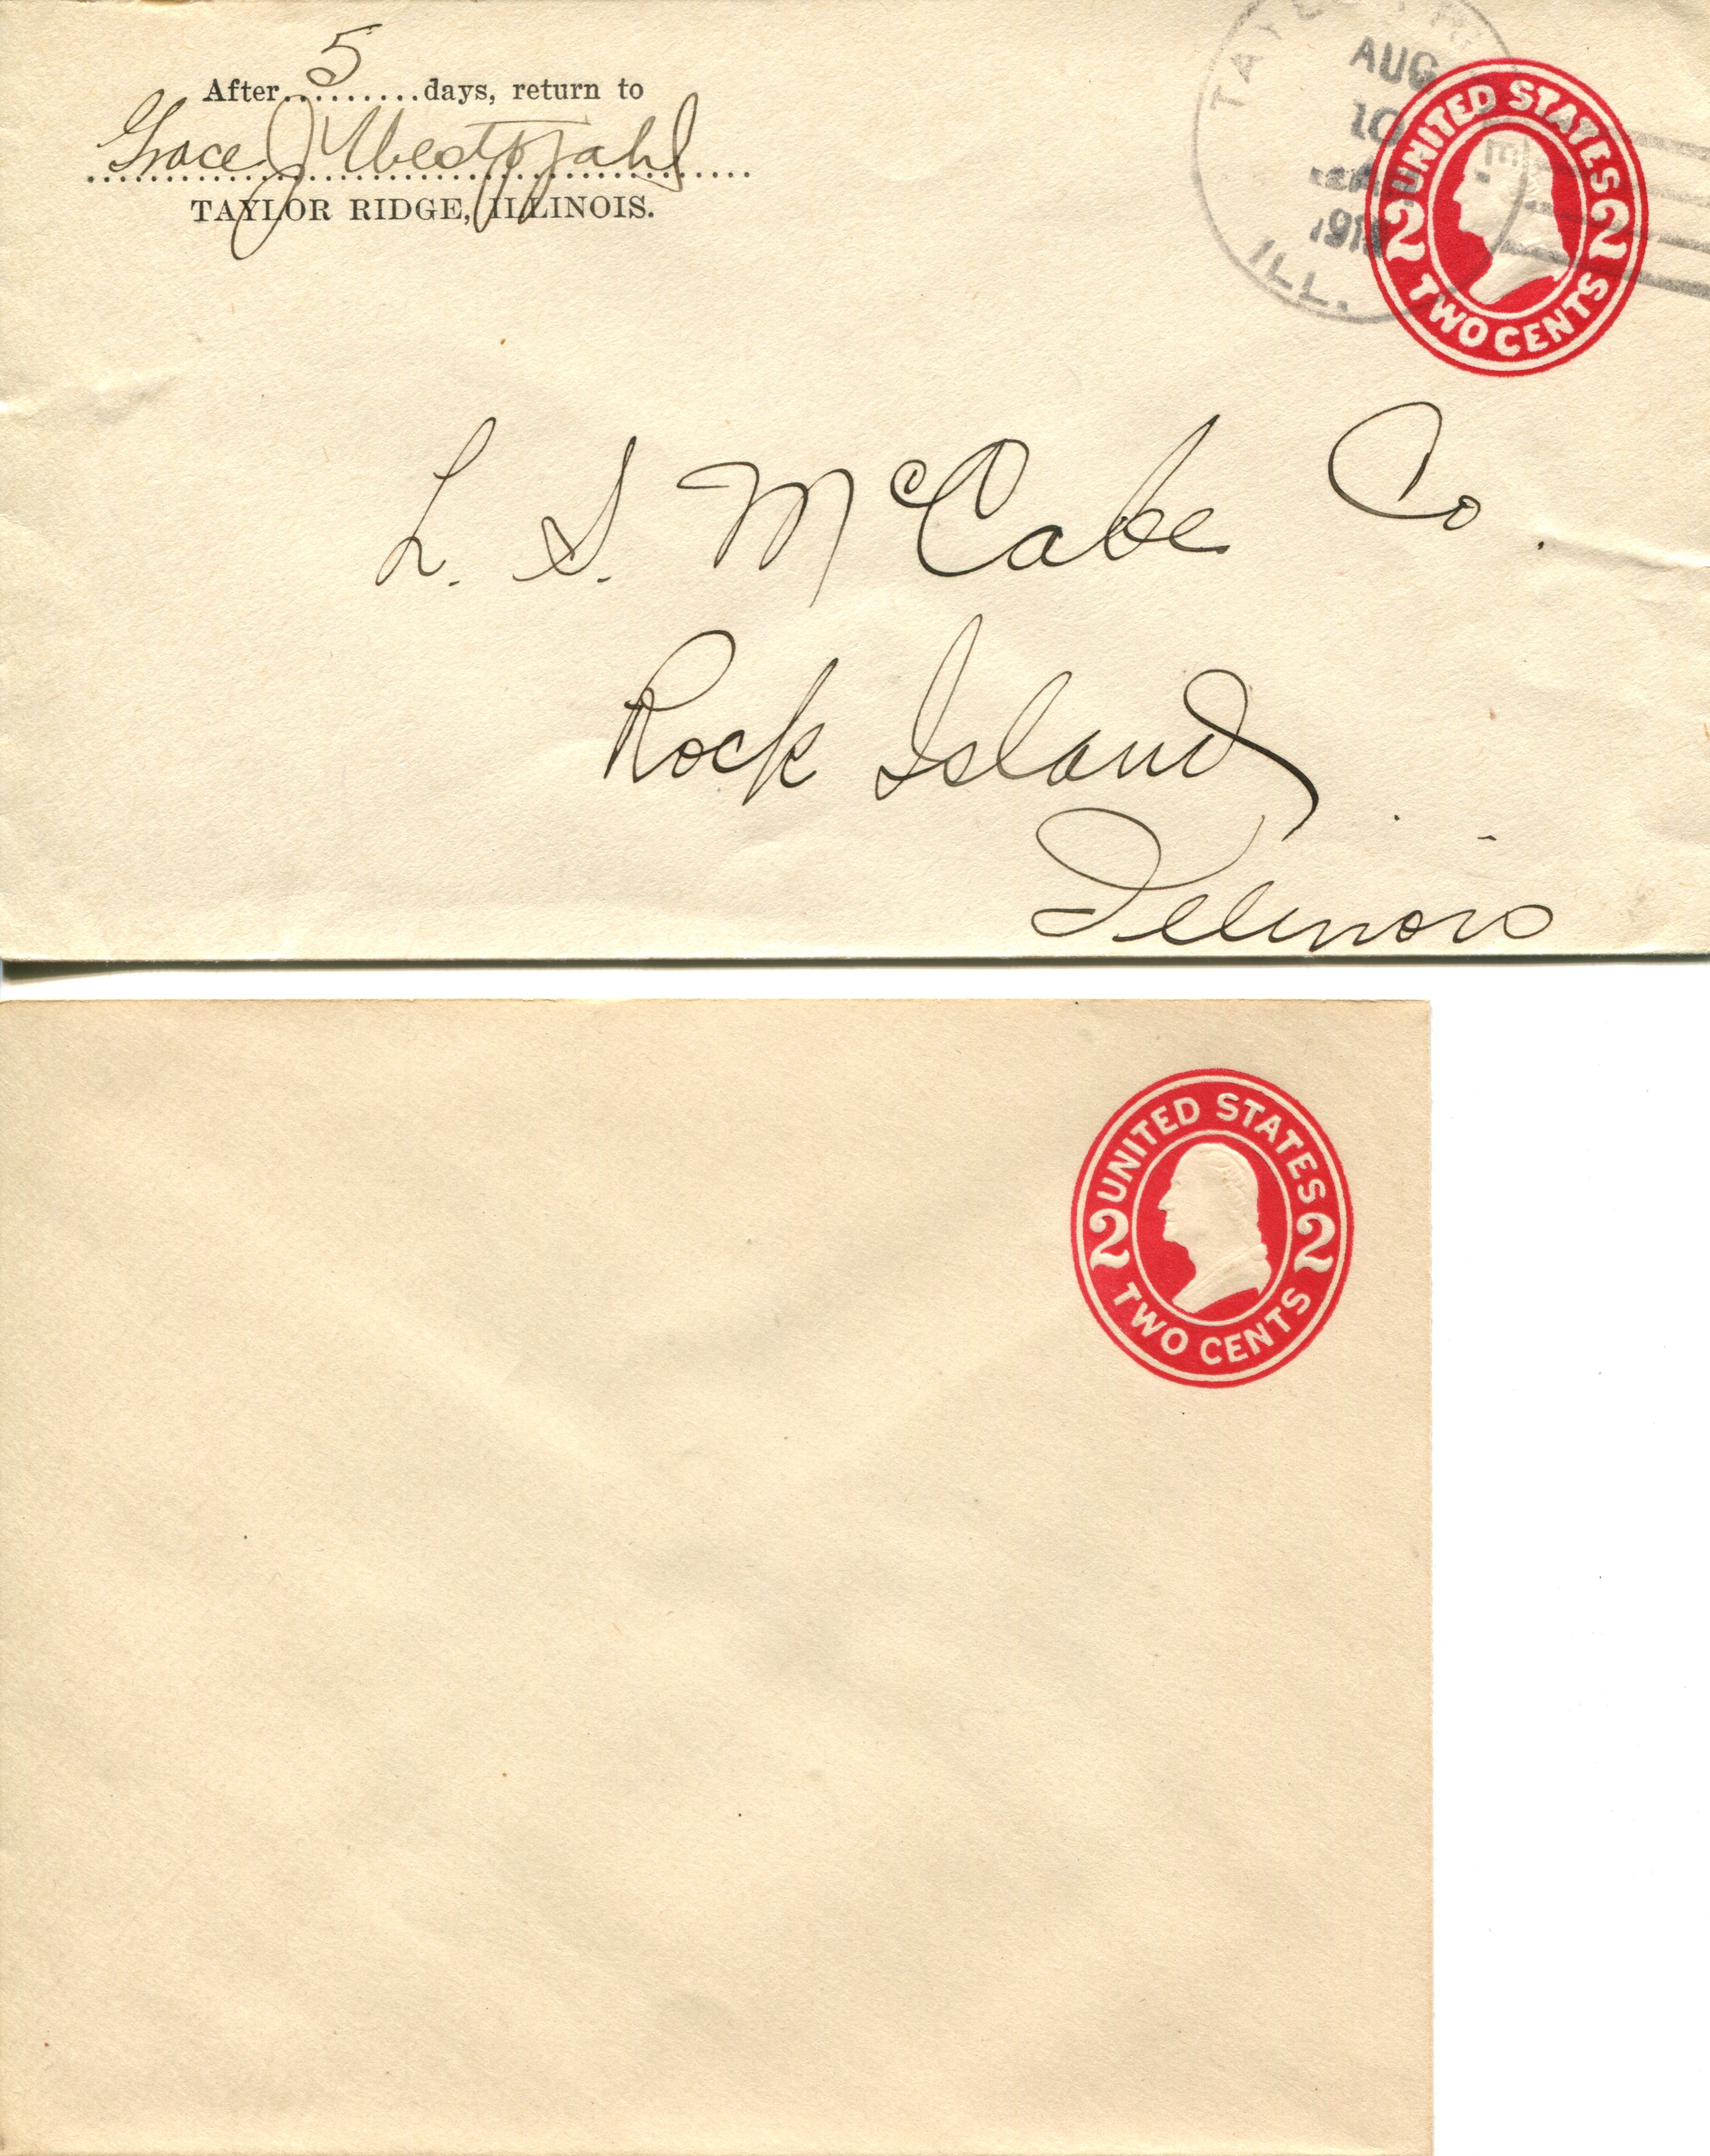 After 5 days, return to
Grace J Westpfahl
TAYLOR RIDGE, ILLINOIS.
AUG
10
ILL.
UNITED STATES
2 2
TWO CENTS
L. S. McCabe Co.
Rock Island
Illinois
UNITED STATES
2 2
TWO CENTS